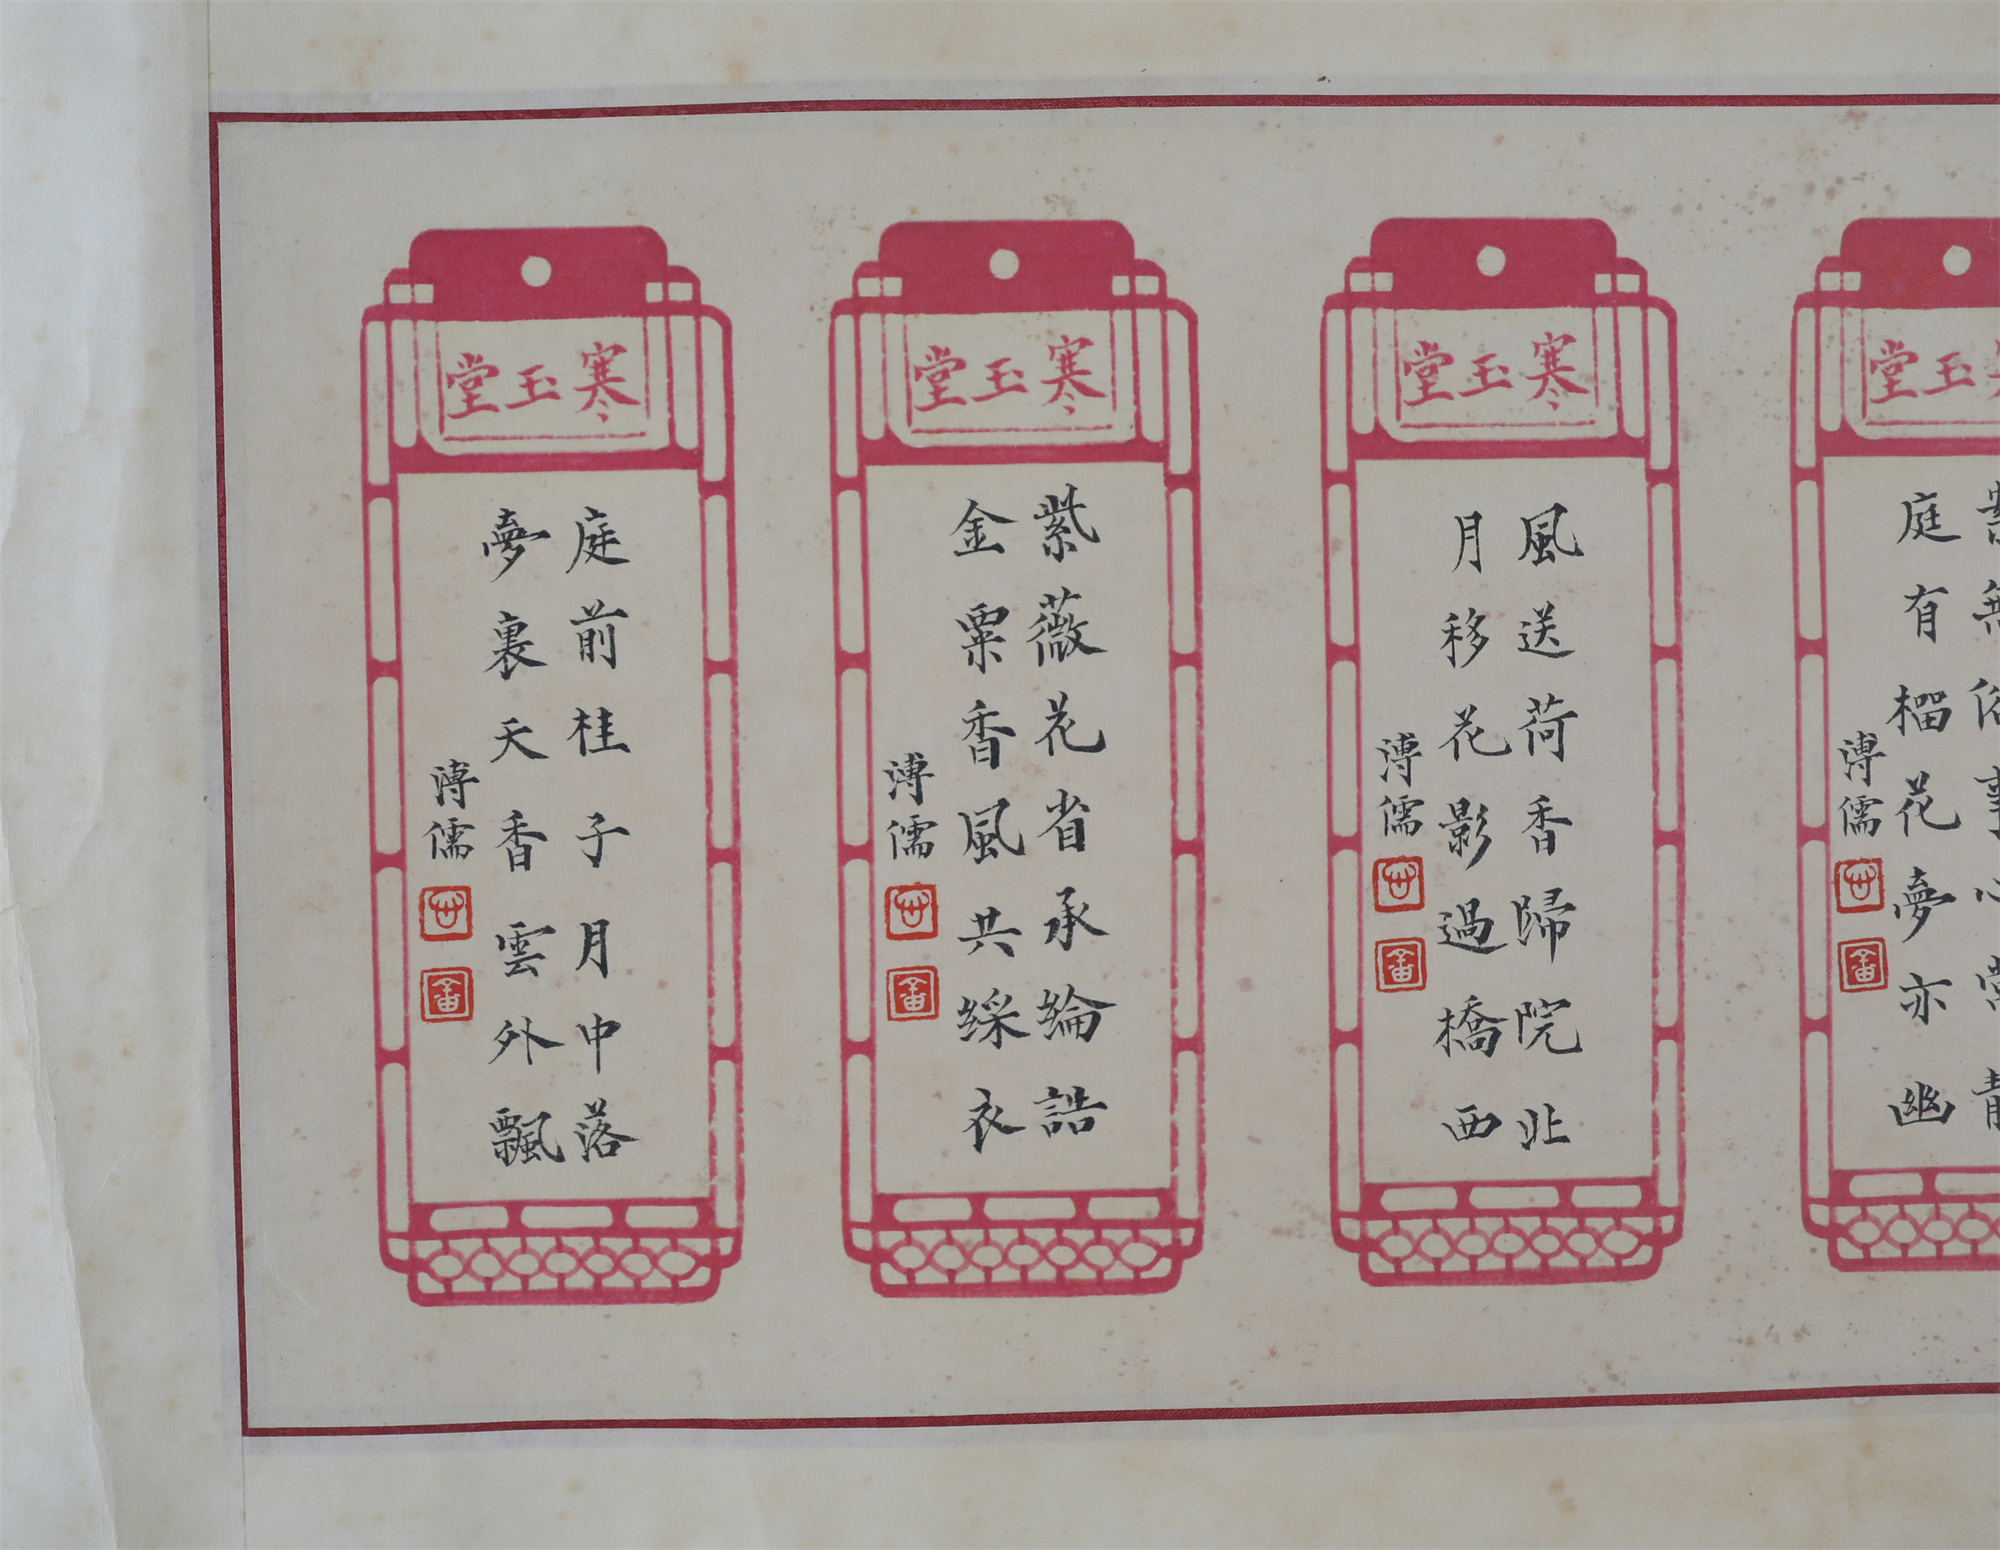 玉堂
庭有榴花夢亦幽
溥儒
寒玉堂
風送荷香歸院北
月移花影過橋西
溥儒
寒玉堂
紫薇花省承綸誥
金粟香風共綵衣
溥儒
寒玉堂
庭前桂子月中落
夢裏天香雲外飄
溥儒